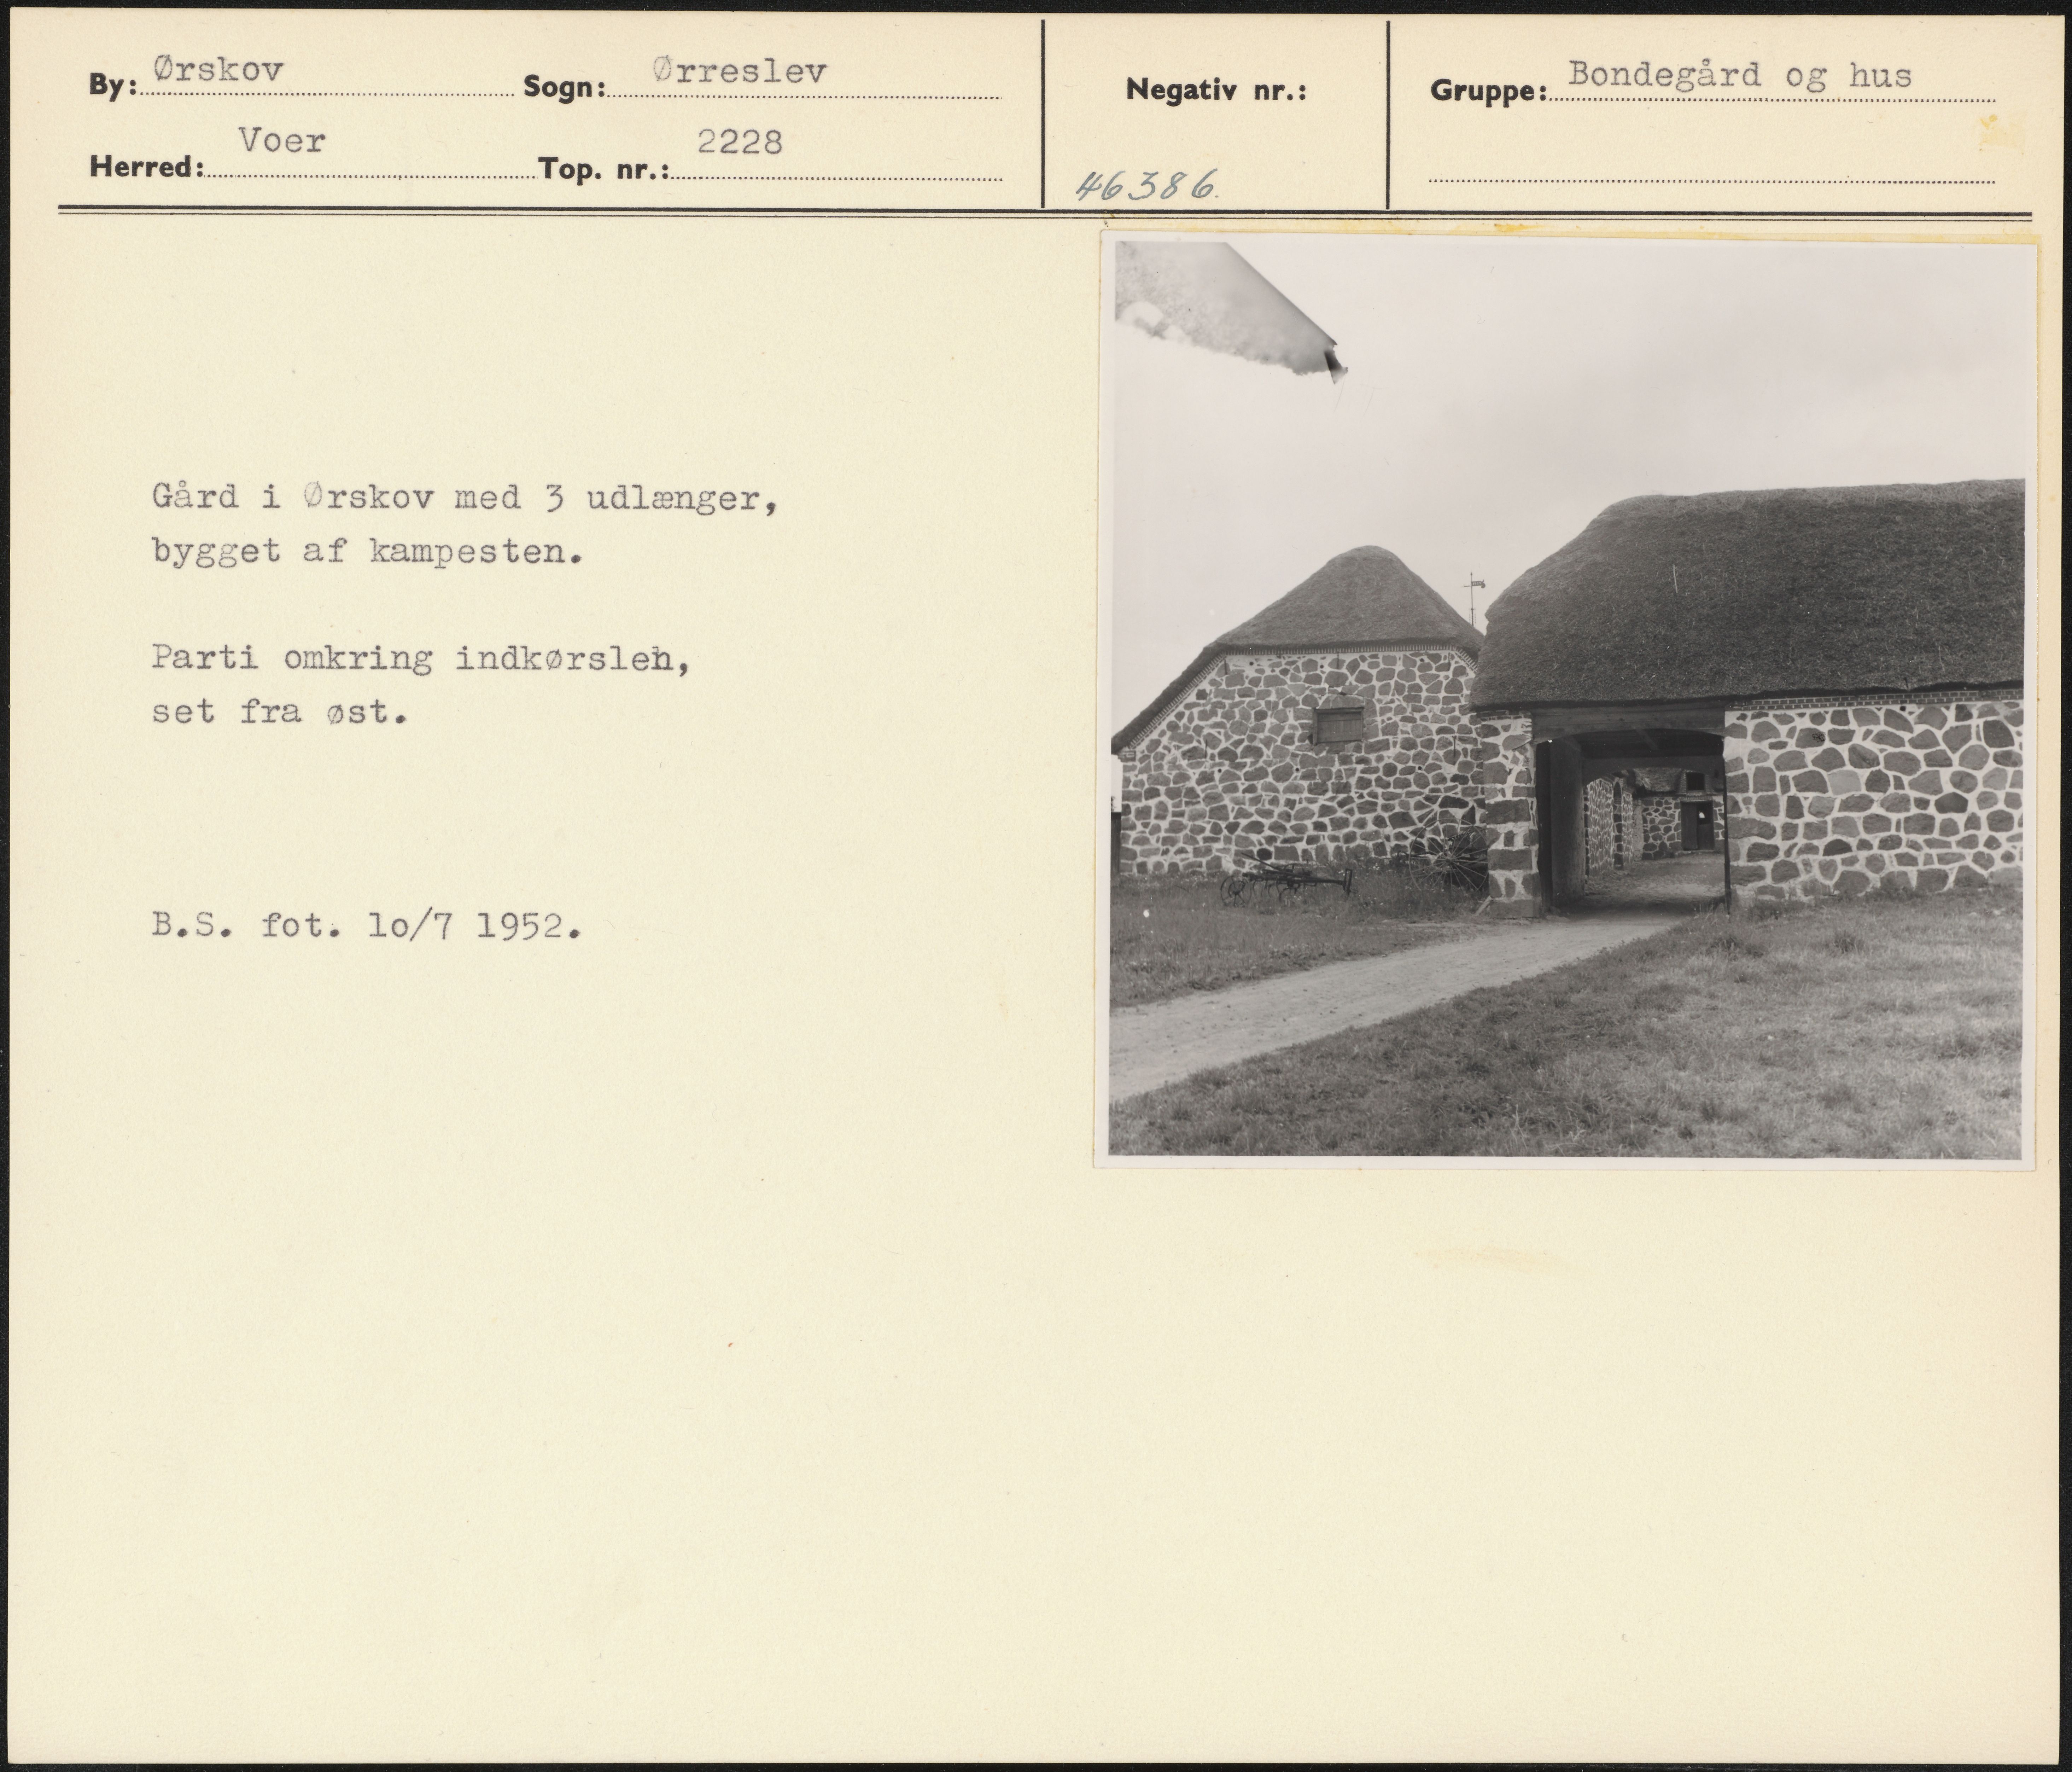 By: Ørskov Sogn: Ørreslev
Herred: Voer Top. nr.: 2228
Negativ nr.:
46386.
Gruppe: Bondegård og hus
Gård i Ørskov med 3 udlænger,
bygget af kampesten.
Parti omkring indkørslen,
set fra øst.
B.S. fot. lo/7 1952.